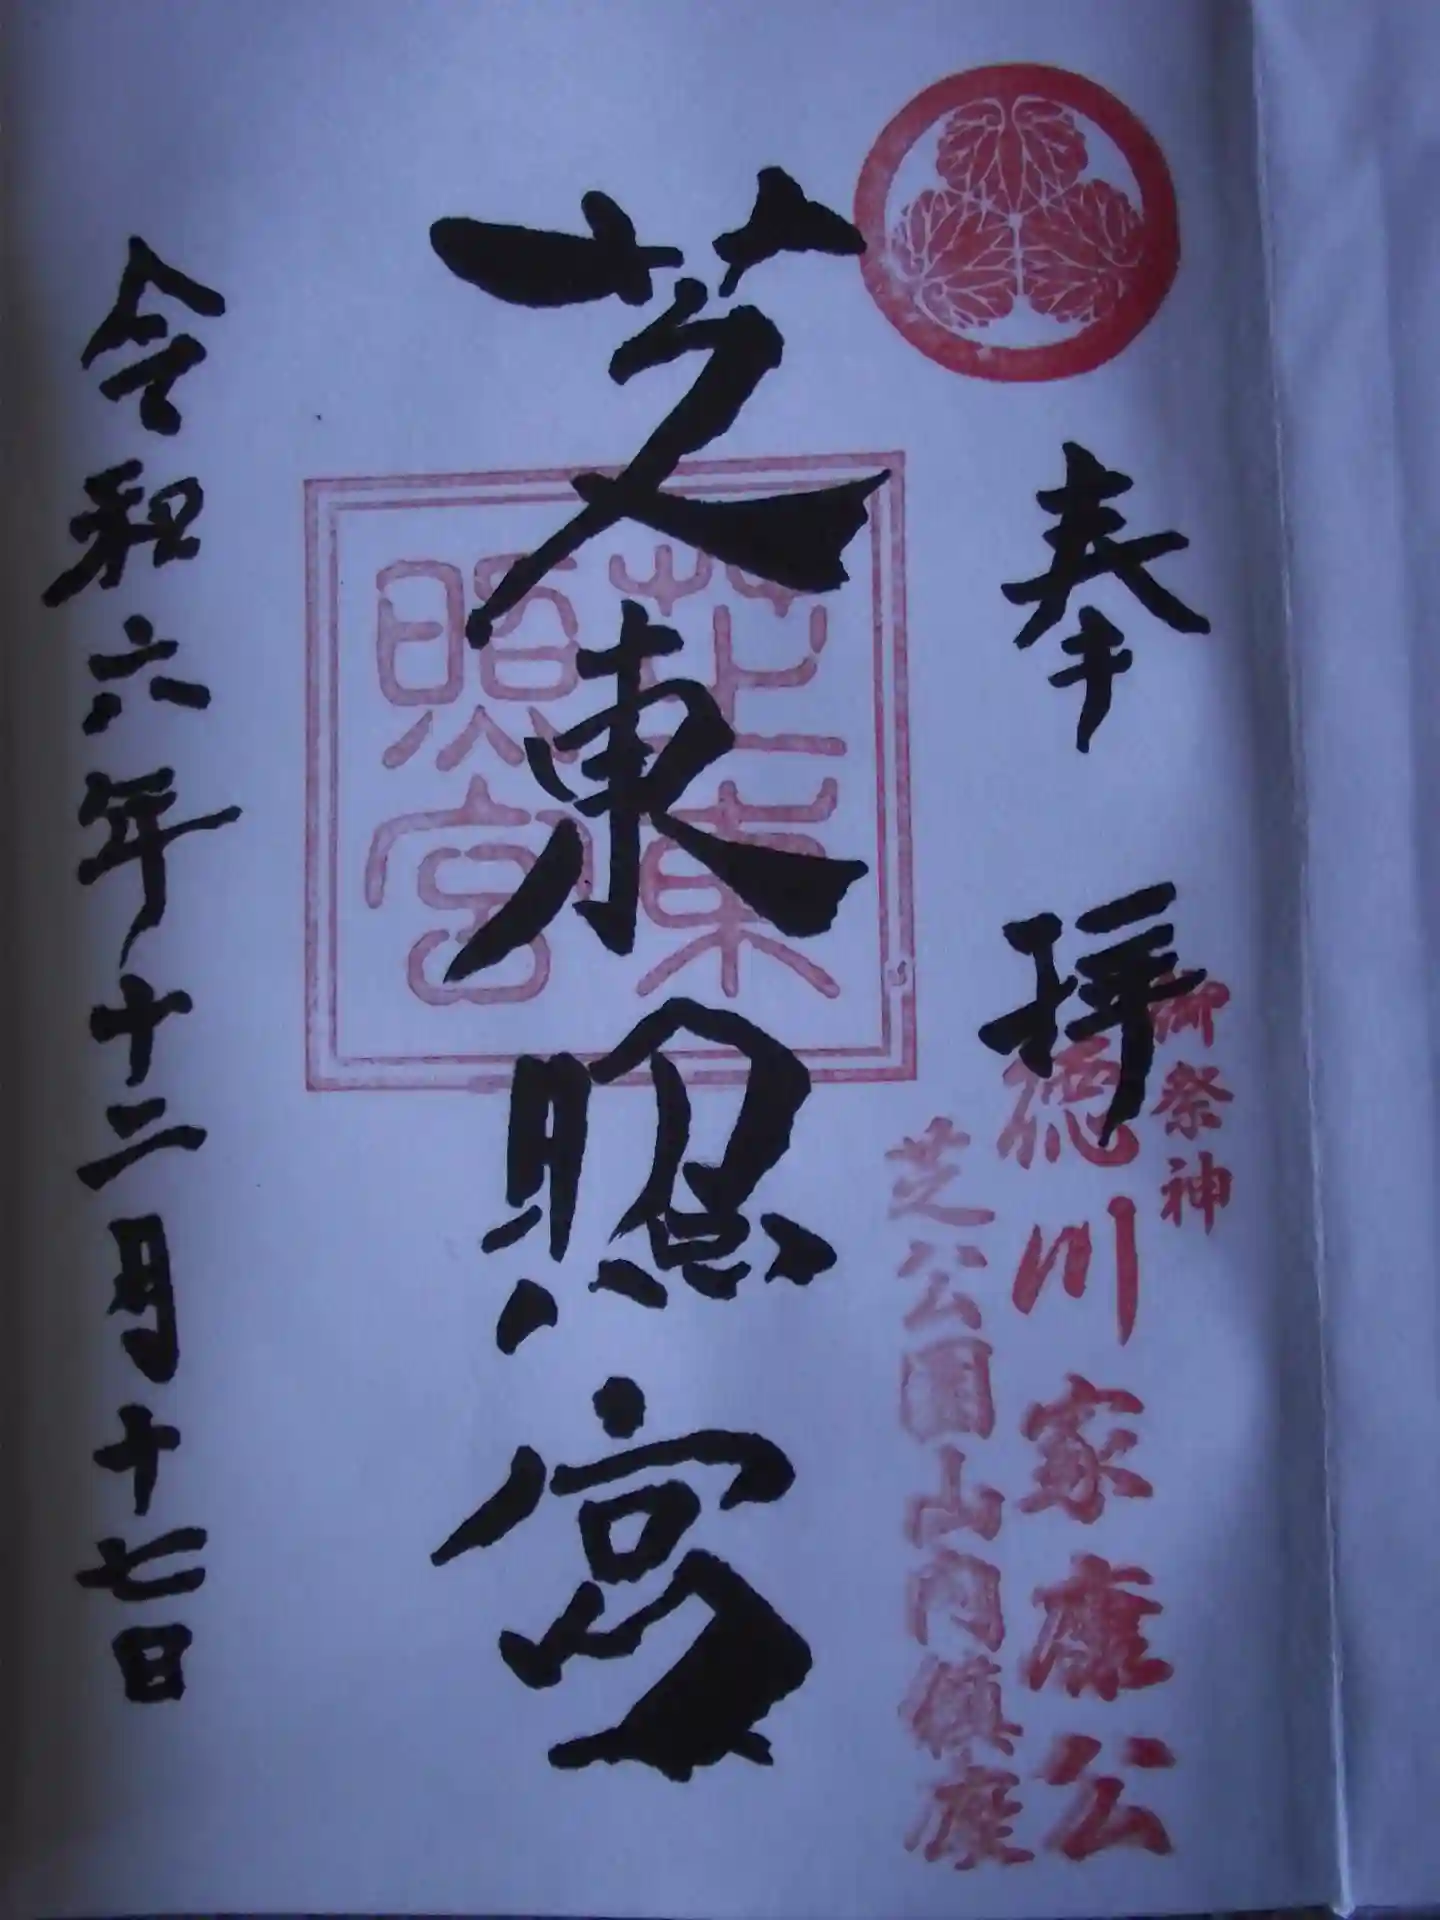 奉拝
御祭神
徳川家康公
芝公園山内鎮座
芝東照宮
芝東
照宮
令和六年十二月十七日